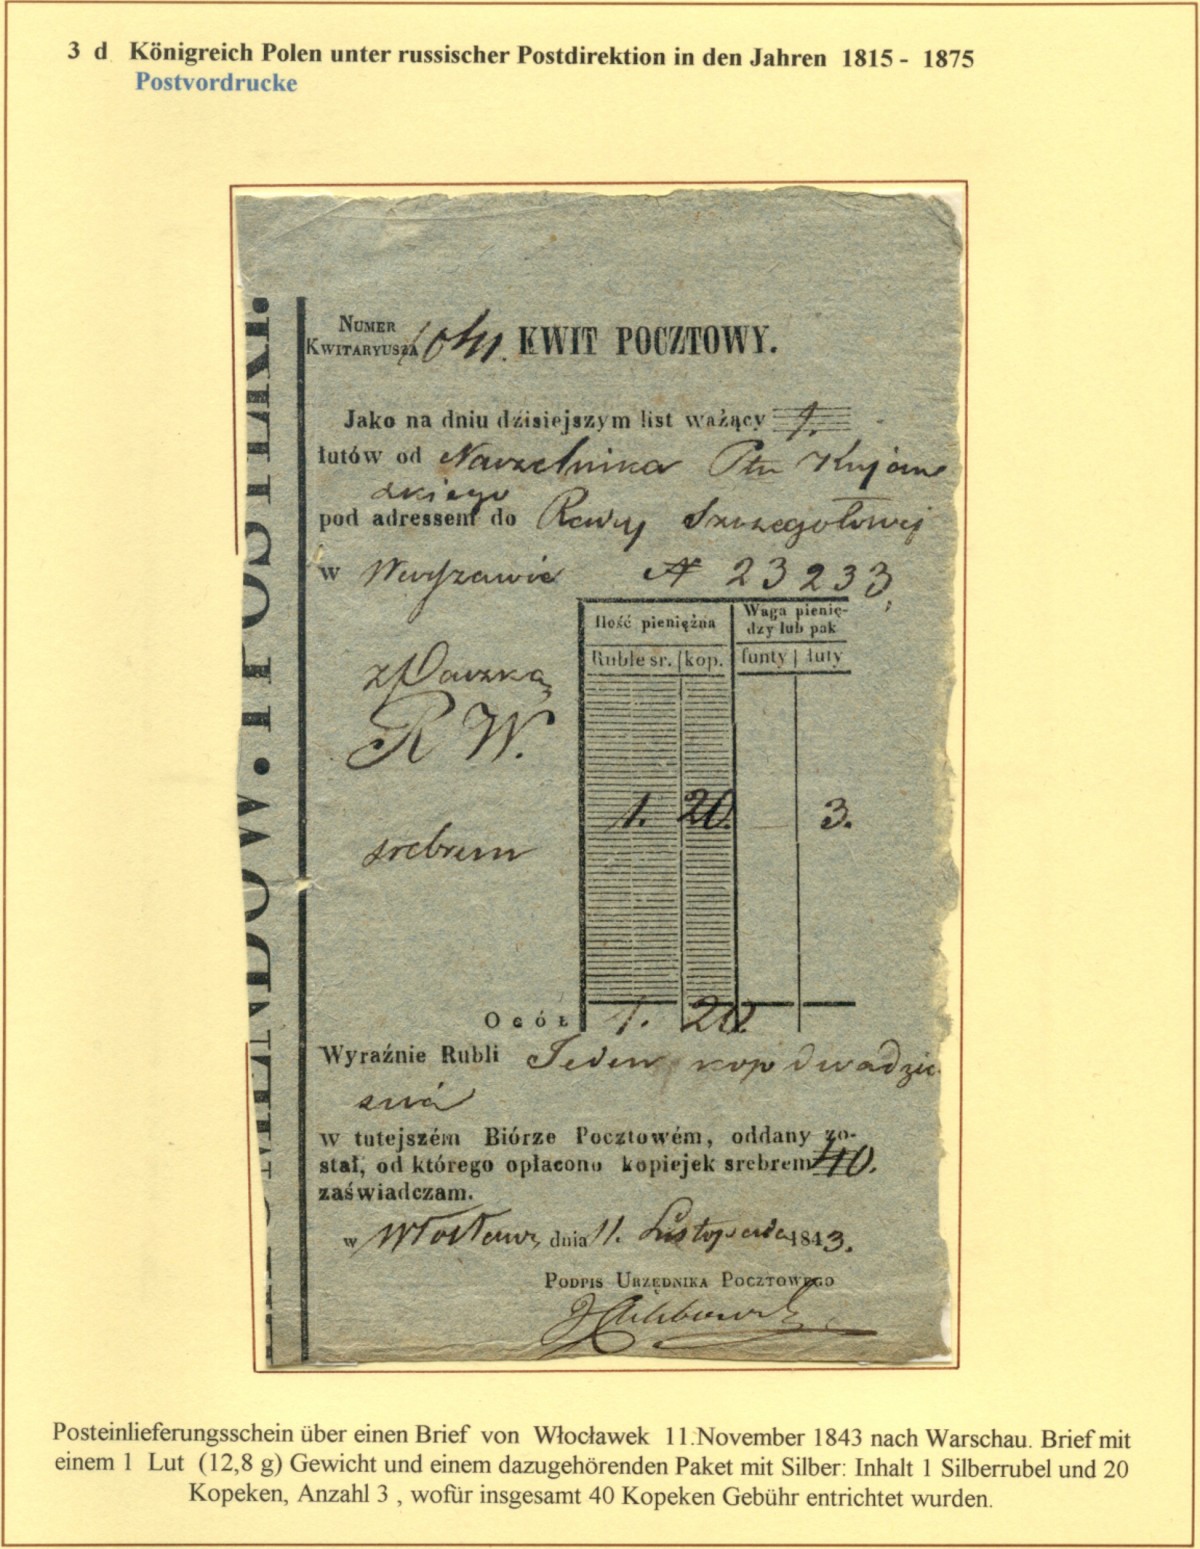 3 d Königreich Polen unter russischer Postdirektion in den Jahren 1815 - 1875
Postvordrucke
NUMER
KWITARYUSZA
KWIT POCZTOWY.
Jako na dniu dzisiejszym list ważący 1.
łutów od Naczelnika Ptu Kujaw
skiego
pod adressem do Rady Szczegołowej
w Warszawie N 23233,
Ilość pieniężna
Waga pienię-
dzy lub pak
Ruble sr. kop. funty łuty
z Paczką
R W.
1. 20. 3.
srebrem
OGÓŁ 1. 20.
Wyraźnie Rubli Jeden kop dwadzie
scia
w tutejszém Biórze Pocztowém, oddany zo-
stał, od którego opłacono kopiejek srebrem 40.
zaświadczam.
w Włocław, dnia 11. Listopada 1843.
PODPIS URZĘDNIKA POCZTOWEGO
Posteinlieferungsschein über einen Brief von Włocławek 11.November 1843 nach Warschau. Brief mit
einem 1 Lut (12,8 g) Gewicht und einem dazugehörenden Paket mit Silber: Inhalt 1 Silberrubel und 20
Kopeken, Anzahl 3 , wofür insgesamt 40 Kopeken Gebühr entrichtet wurden.